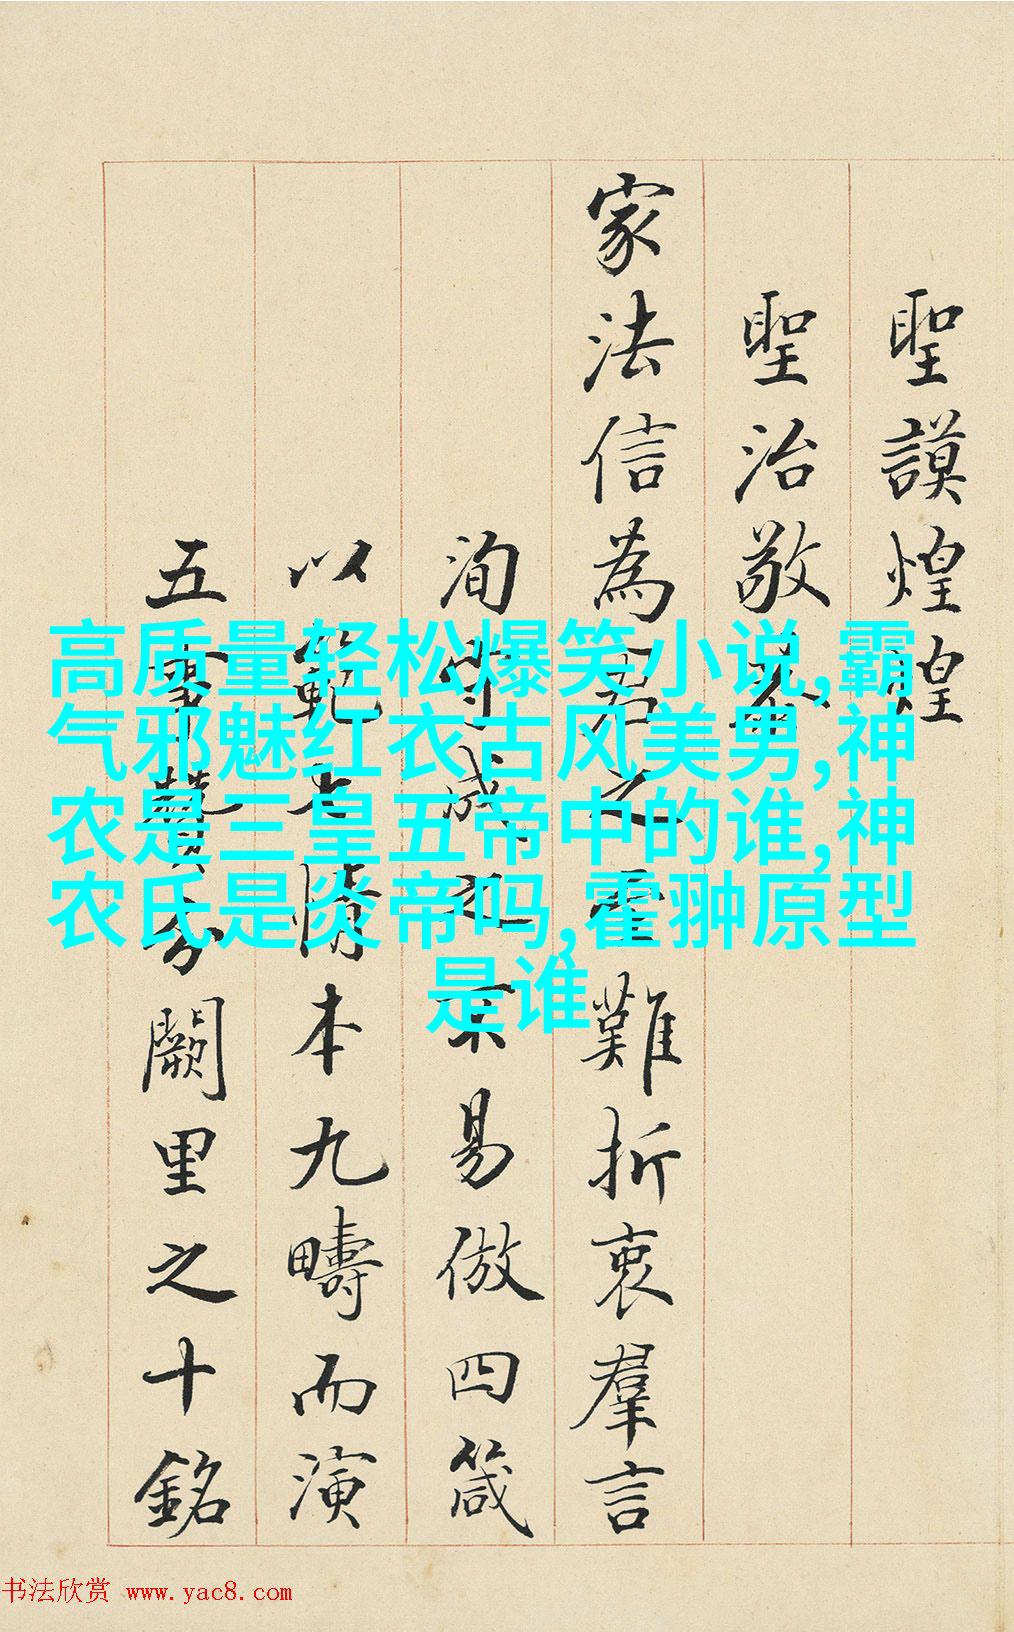 聖謨煌煌
聖治敬
家法信為君之 難折衷羣言
洵 成 易倣四箴
以範 情本九疇而演
五事 分闕里之十銘
高质量轻松爆笑小说,霸
气邪魅红衣古风美男,神
农是三皇五帝中的谁,神
农氏是炎帝吗,霍翀原型
是谁
书法欣赏 www.yac8.com